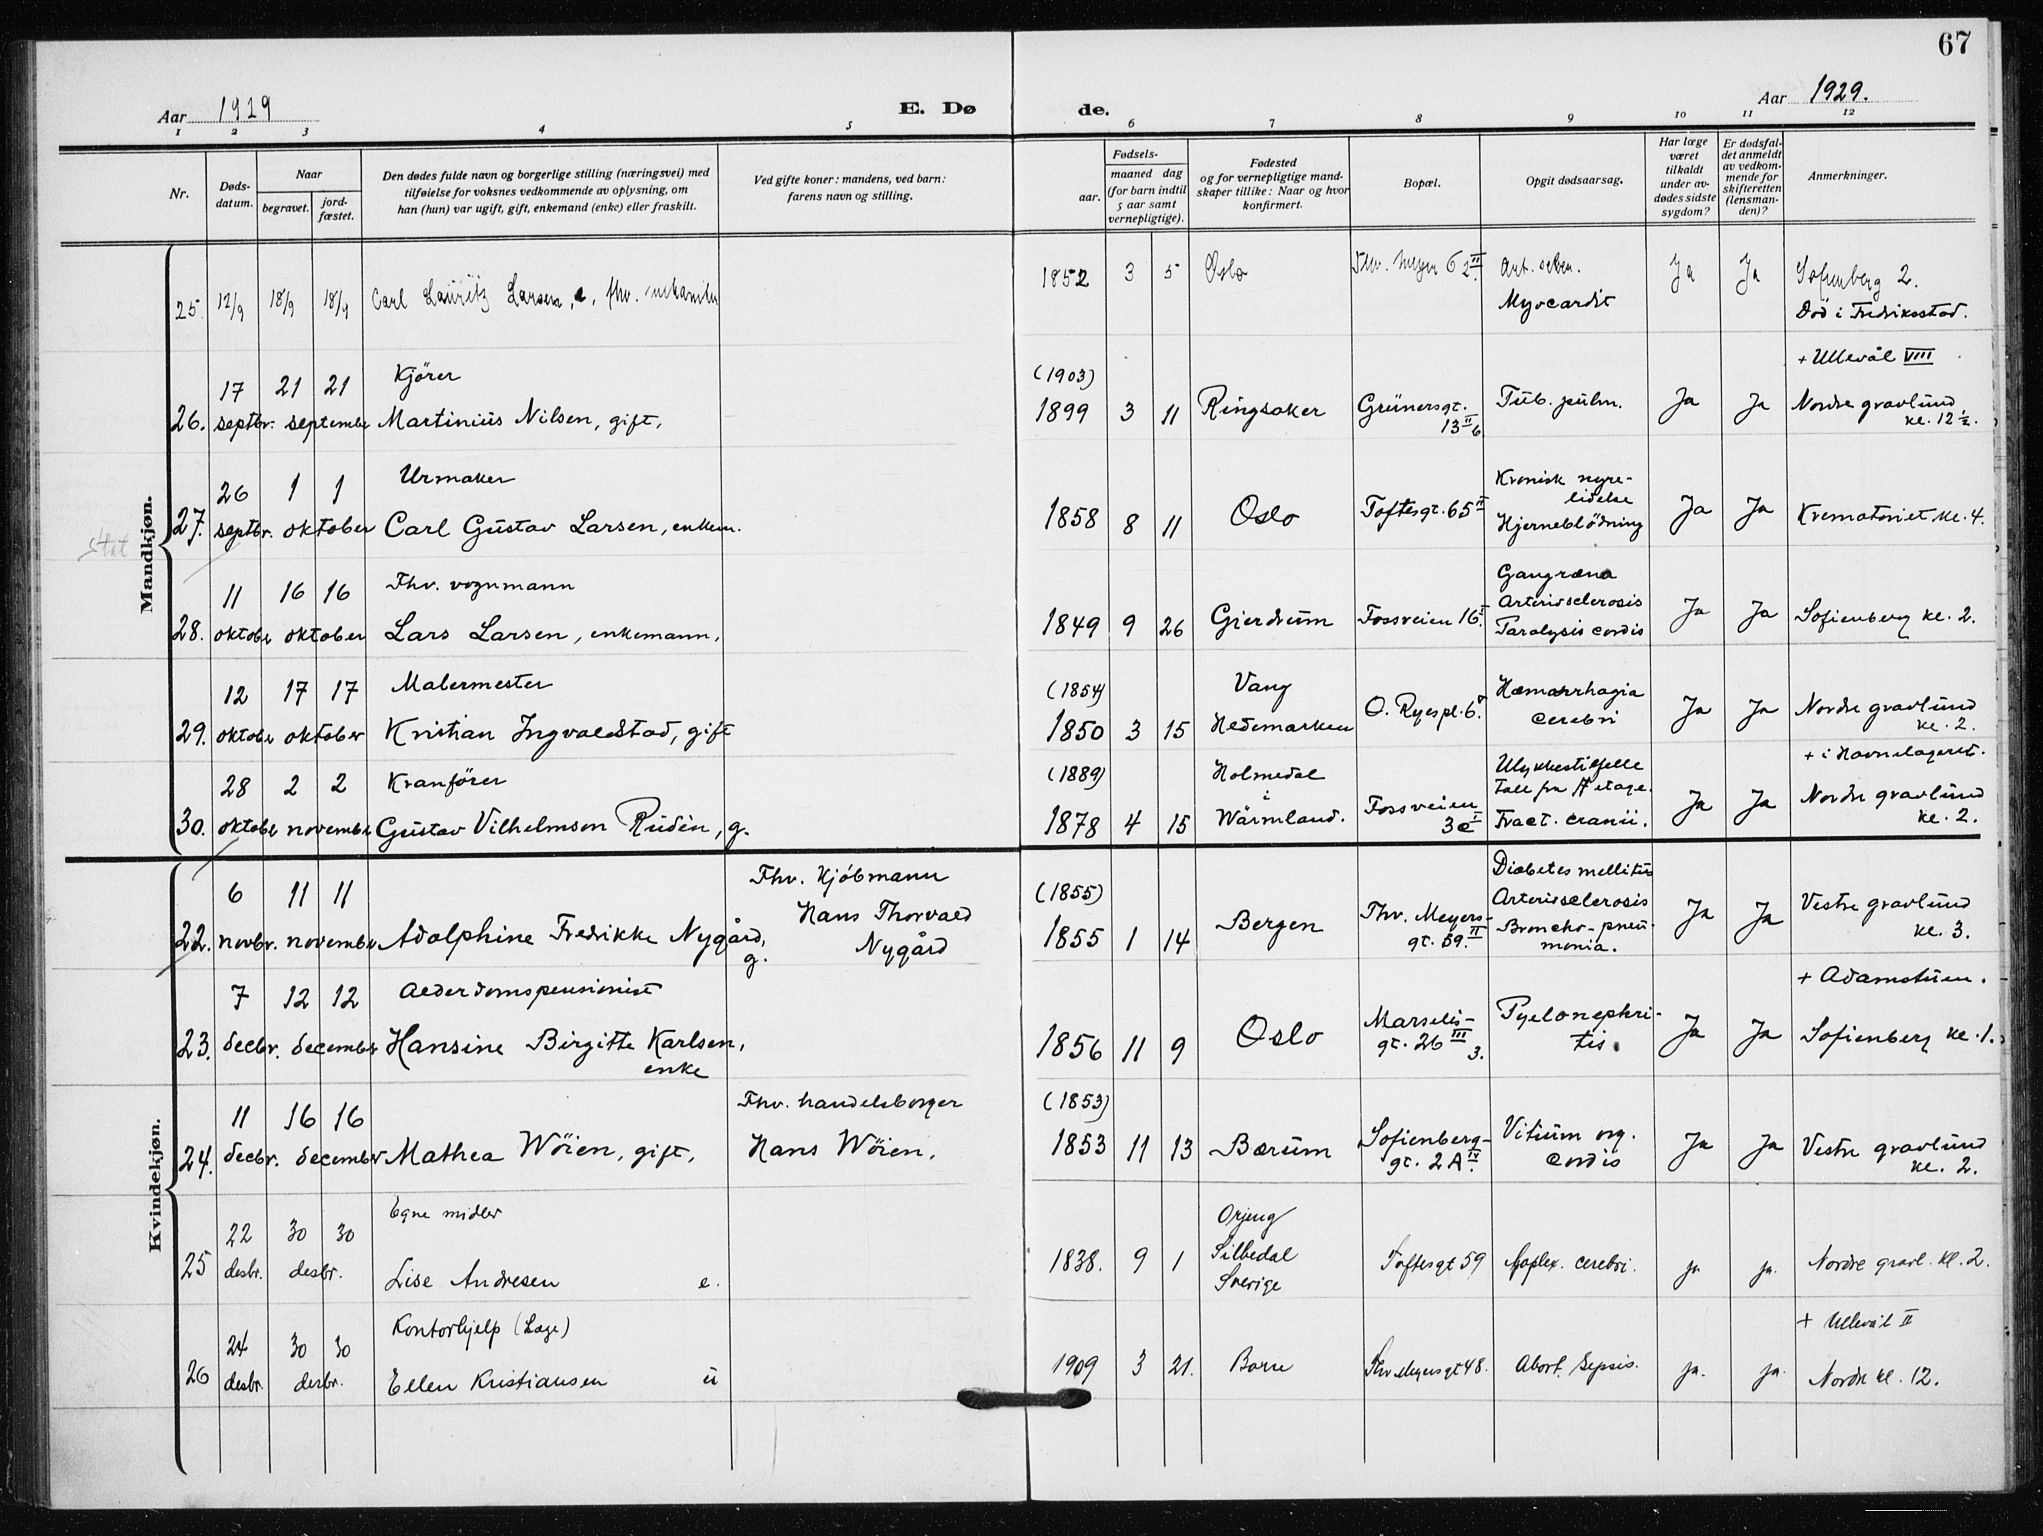 67
Aar 1929
E. Dø
de.
Aar 1929.
1 2 3 4 5 6 7 8 9 10 11 12
Nr.
Døds-
datum.
Naar
begravet.
jord-
fæstet.
Den dødes fulde navn og borgerlige stilling (næringsvei) med
tilføielse for voksnes vedkommende av oplysning, om
han (hun) var ugift, gift, enkemand (enke) eller fraskilt.
Ved gifte koner: mandens, ved barn:
farens navn og stilling.
Fødsels-
aar.
maaned dag
(for barn indtil
5 aar samt
vernepligtige).
Fødested
og for vernepligtige mand-
skaper tillike: Naar og hvor
konfirmert.
Bopæl.
Opgit dødsaarsag.
Har læge
været
tilkaldt
under av-
dødes sidste
sygdom?
Er dødsfal-
det anmeldt
av vedkom-
mende for
skifteretten
(lensman-
den)?
Anmerkninger.
Mandkjøn.
25. 12/9 18/9 18/9 Carl Lauritz Larsen, e, fhv. mekaniker
1852 3 5 Oslo Thv. Meyer 62 II Art. scler.
Myocardit
Ja Ja Sofienberg 2.
Död i Fredriksstad.
26. 17 septbr. 21 21 september
Kjörer
Martinius Nilsen, gift,
(1903)
1899 3 11 Ringsaker Grünersgt.
13 II 6
Tub. pulm. Ja Ja
+ Ullevål VIII
Nordre gravlund
kl. 12 ½.
27. 26 septbr. 1 1 oktober
Urmaker
Carl Gustav Larsen, enkem.
1858 8 11 Oslo Toftesgt. 65 II
Kronisk nyre-
lidelse
Hjerneblödning
Ja Ja Krematoriet kl. 4.
28. 11 oktober 16 16 oktober
Fhv. vognmann
Lars Larsen, enkemann,
1849 9 26 Gjerdrum Fossveien 16 I
Gangræna
Arteriosclerosis
Paralysis cordis
Ja Ja Sofienberg kl. 2.
29. 12 oktober 17 17 oktober
Malermester
Kristian Ingvaldstad, gift
(1854)
1850 3 15 Vang
Hedemarken
O. Ryespl. 6.
Hæmorrhagia
cerebri
Ja Ja Nordre gravlund
kl. 2.
30. 28 oktober 2 2 november
Kranförer
Gustav Vilhelmson Rudén, g.
(1889)
1878 4 15 Holmedal
i
Wärmland.
Fossveien
3 c I
Ulykkestilfelle
Fall fra etage.
Fract. cranii.
Ja Ja
+ i Havnelageret.
Nordre gravlund
kl. 2.
Kvindekjøn.
22. 6 novbr. 11 11 november
Adolphine Fredrikke Nygård,
g.
Fhv. Kjöbmann
Hans Thorvald
Nygård
(1855)
1855 1 14 Bergen Thv. Meyers-
gt. 59. II
Diabetes mellitus
Arteriosclerosis
Broncho-pneu-
monia.
Ja Ja Vestre gravlund
kl. 3.
23. 7 decbr. 12 12 december
Alderdomspensionist
Hansine Birgitte Karlsen,
enke
1856 11 9 Oslo Marselis-
gt. 26 III
3.
Pyelonephri-
tis.
Ja Ja
+ Adamstuen.
Sofienberg kl. 1.
24. 11 decbr. 16 16 december
Mathea Wöien, gift,
Fhv. handelsborger
Hans Wöien,
(1853)
1853 11 13 Bærum Sofienberg-
gt. 2 A
Vitium org.
cordis
Ja Ja Vestre gravlund
kl. 2.
25 22 desbr. 30 30 desbr.
Egne midler
Lise Andresen e.
1838. 9 1
Silbedal
Sverige
Toftesgt 59 Apoplex. cerebri. ja ja. Nordre gravl. kl. 2.
26 24 desbr. 30 30 desbr.
Kontorhjelp (Læge)
Ellen Kristiansen u
1909 3 21. Borre Thv Meyersgt 48. Abort. Sepsis. ja. ja.
+ Ullevål II
Nordre kl. 12.